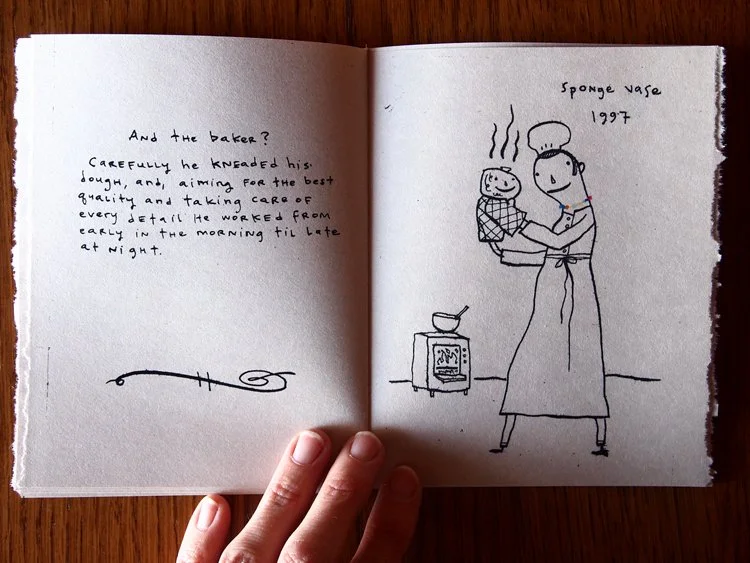 And the baker?
Carefully he kneaded his
dough, and, aiming for the best
quality and taking care of
every detail he worked from
early in the morning til late
at night.
Sponge vase
1997